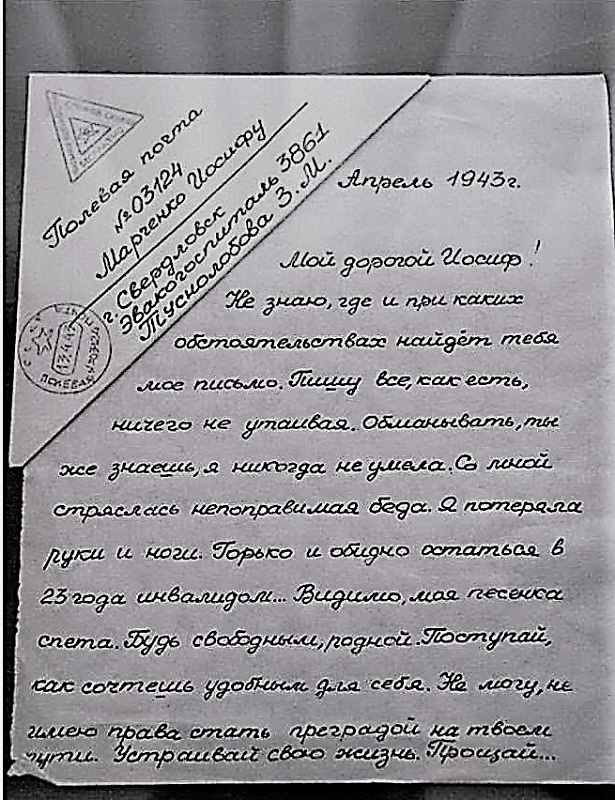 Полевая почта
№ 03124
Марченко Иосифу
г. Свердловск
Эвакогоспиталь 3861
Туснолобова З. М.
Апрель 1943г.
Мой дорогой Иосиф!
Не знаю, где и при каких
обстоятельствах найдёт тебя
мое письмо. Пишу все, как есть,
ничего не утаивая. Обманывать, ты
же знаешь, я никогда не умела. Со мной
стряслась непоправимая беда. Я потеряла
руки и ноги. Горько и обидно остаться в
23 года инвалидом... Видимо, моя песенка
спета. Будь свободным, родной. Поступай,
как сочтешь удобным для себя. Не могу, не
имею права стать преградой на твоем
пути. Устраивай свою жизнь. Прощай...
ПОЛЕВАЯ